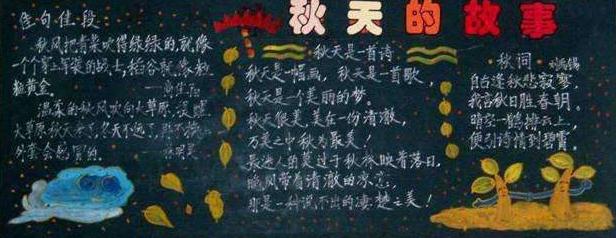 秋天的故事
佳句佳段:
秋风把青菜吹得绿绿的,就像
一个个穿上军装的战士;稻谷就像粒
粒黄金。
温柔的秋风吹向大草原,提醒
大草原秋天来了,冬天不远了,再不换
外套会感冒的。
秋天是一首诗
秋天是一幅画,秋天是一首歌,
秋天是一个美丽的梦。
秋天很美,美在一份清澈,
万美之中秋为最美!
最迷人的莫过于秋秋映着落日,
晚风带着清澈的凉意,
那是一种说不出的凄楚之美!
秋词 刘禹锡
自古逢秋悲寂寥,
我言秋日胜春朝。
晴空一鹤排云上,
便引诗情到碧霄。